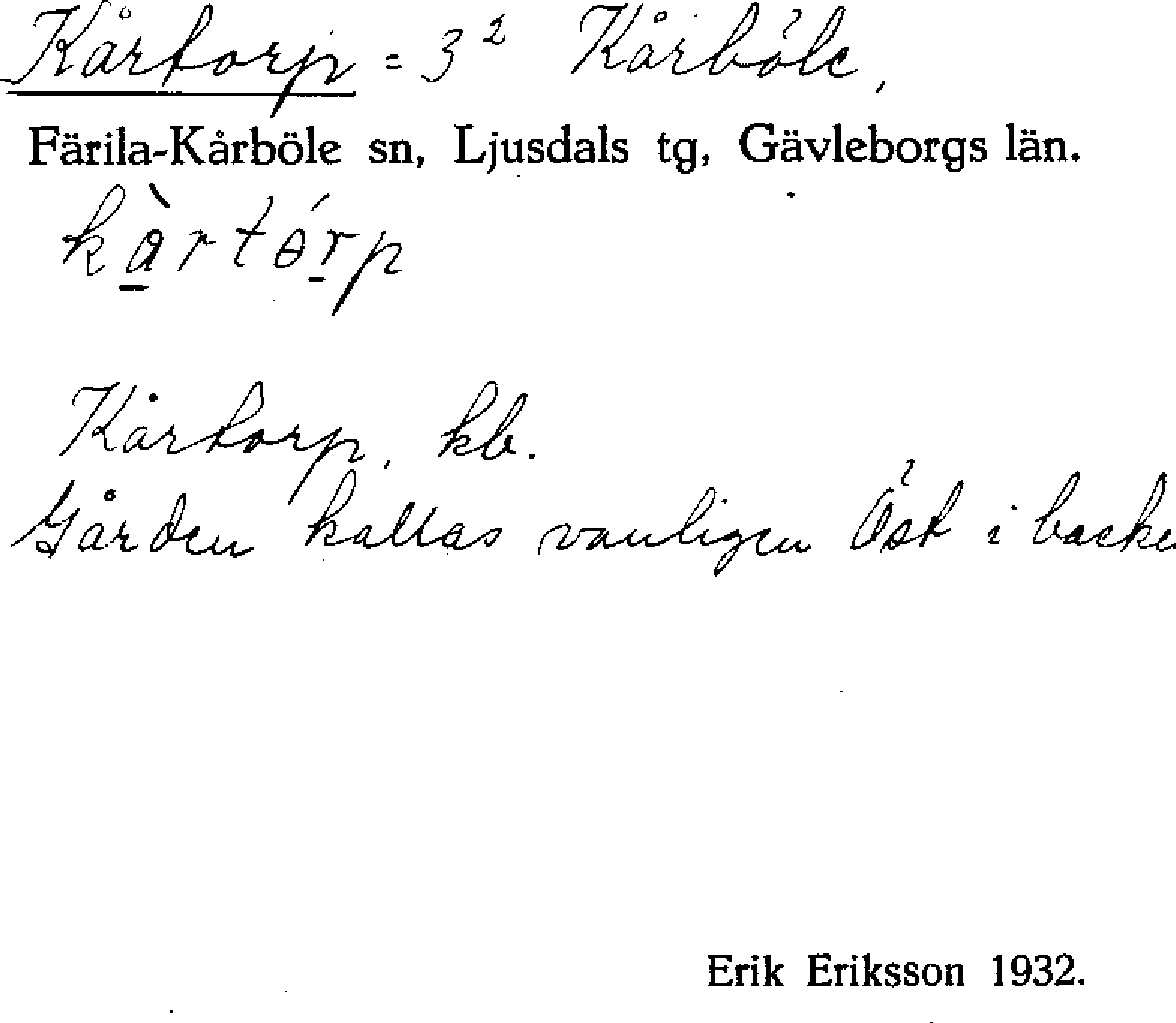 Kårtorp = 3² Kårböle,
Färila-Kårböle sn, Ljusdals tg, Gävleborgs län.
kàrtɵ́rp
Kårtorp, kb.
Gården kallas vanligen Öst i backen
Erik Eriksson 1932.